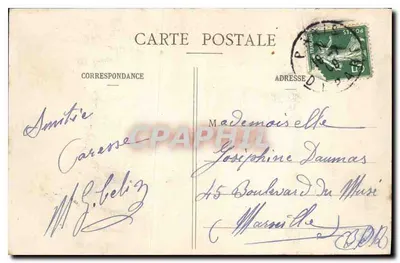 CARTE POSTALE
CORRESPONDANCE
ADRESSE
Amitié
Caresse
Mademoiselle
Joséphine Daumas
45 Boulevard du Musé
(Marseille)
BDR
CPAPHIL